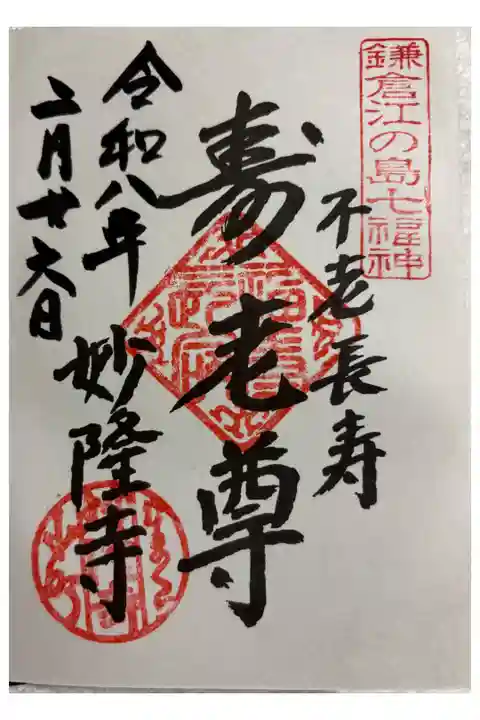 鎌倉江の島七福神
不老長寿
寿老尊
妙隆寺
令和八年
二月廿六日